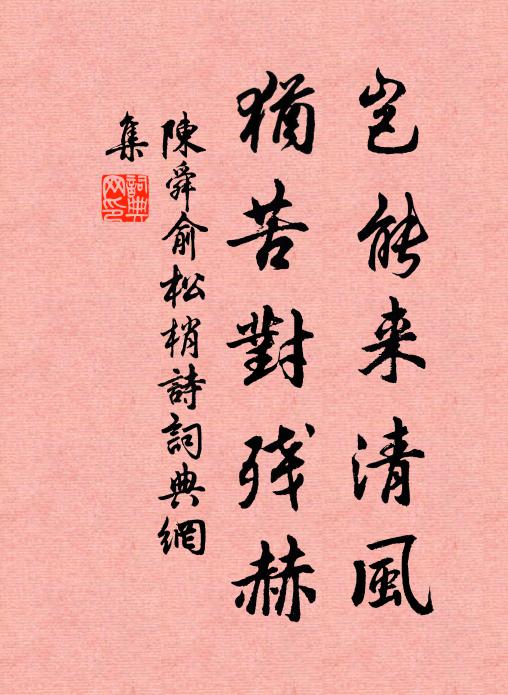 岂能来清風
猶苦對残赫
陳舜俞松梢詩詞典網
集
詞典網印